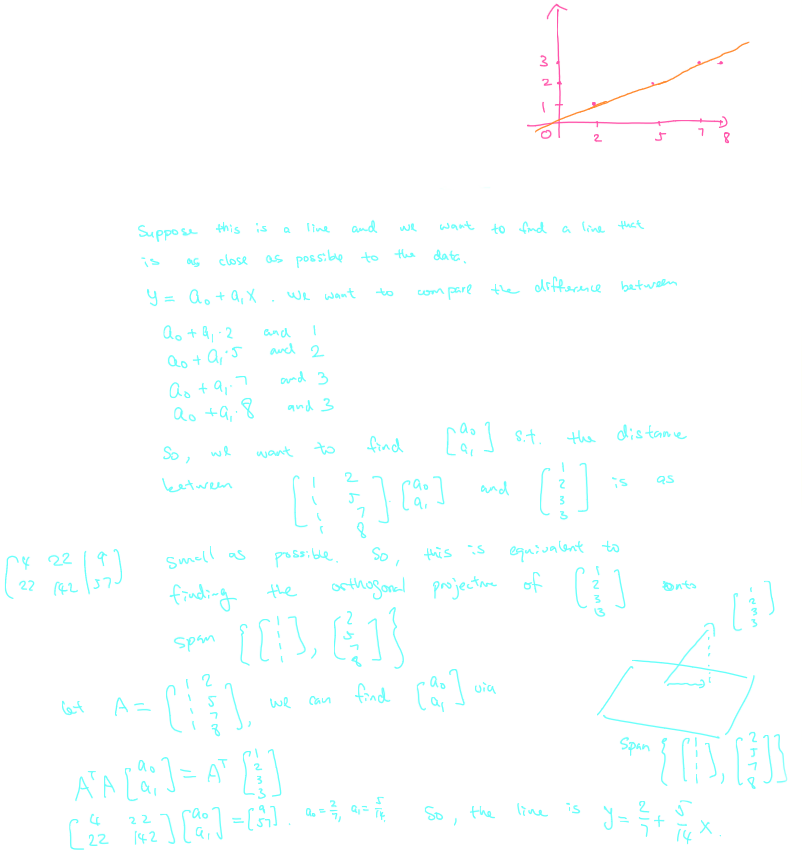 3
2
1
0 2 5 7 8
Suppose this is a line and we want to find a line that
is as close as possible to the data.
y = a₀ + a₁x . We want to compare the difference between
a₀ + a₁·2 and 1
a₀ + a₁·5 and 2
a₀ + a₁·7 and 3
a₀ + a₁·8 and 3
So, we want to find [a₀ a₁] s.t. the distance
between [1 2; 1 5; 1 7; 1 8] [a₀ a₁] and [1 2 3 3] is as
small as possible. So, this is equivalent to
[4 22 | 9; 22 142 | 57]
finding the orthogonal projection of [1 2 3 3] onto
span {[1 1 1 1], [2 5 7 8]}
[1 2 3 3]
let A = [1 2; 1 5; 1 7; 1 8], we can find [a₀ a₁] via
span {[1 1 1 1], [2 5 7 8]}
AᵀA [a₀ a₁] = Aᵀ [1 2 3 3]
[4 22; 22 142] [a₀ a₁] = [9 57]. a₀ = 2/7, a₁ = 5/14. So, the line is y = 2/7 + 5/14 x.